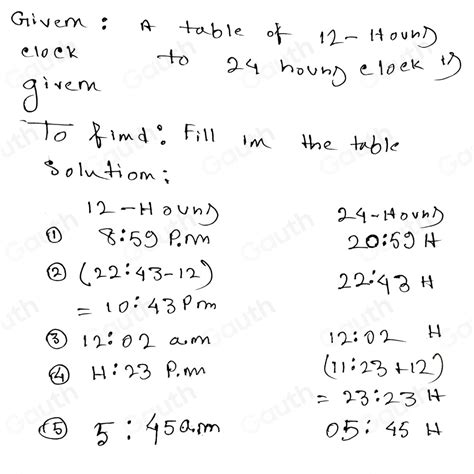 Given : A table of 12-Hours
clock to 24 hours clock is
given
To find : Fill in the table
Solution :
12-Hours 24-Hours
① 8:59 P.m 20:59 H
② (22:43-12) 22:43 H
= 10:43 Pm
③ 12:02 am 12:02 H
④ H:23 P.m (11:23+12)
= 23:23 H
⑤ 5:45 a.m 05:45 H